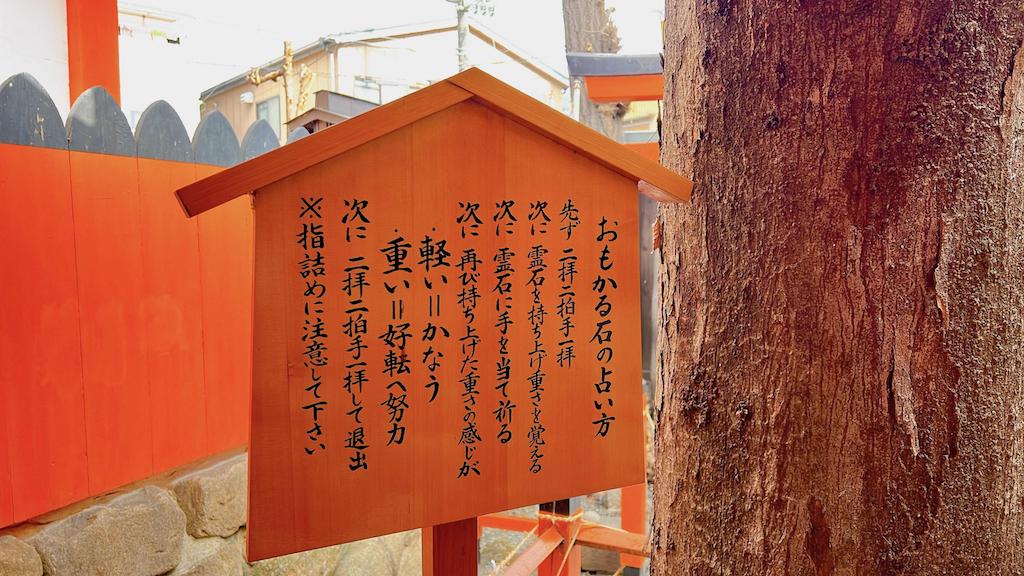 おもかる石の占い方
先ず 二拝二拍手一拝
次に 霊石を持ち上げ重さを覚える
次に 霊石に手を当て祈る
次に 再び持ち上げた重さの感じが
・軽い＝かなう
・重い＝好転へ努力
次に 二拝二拍手一拝して退出
※指詰めに注意して下さい